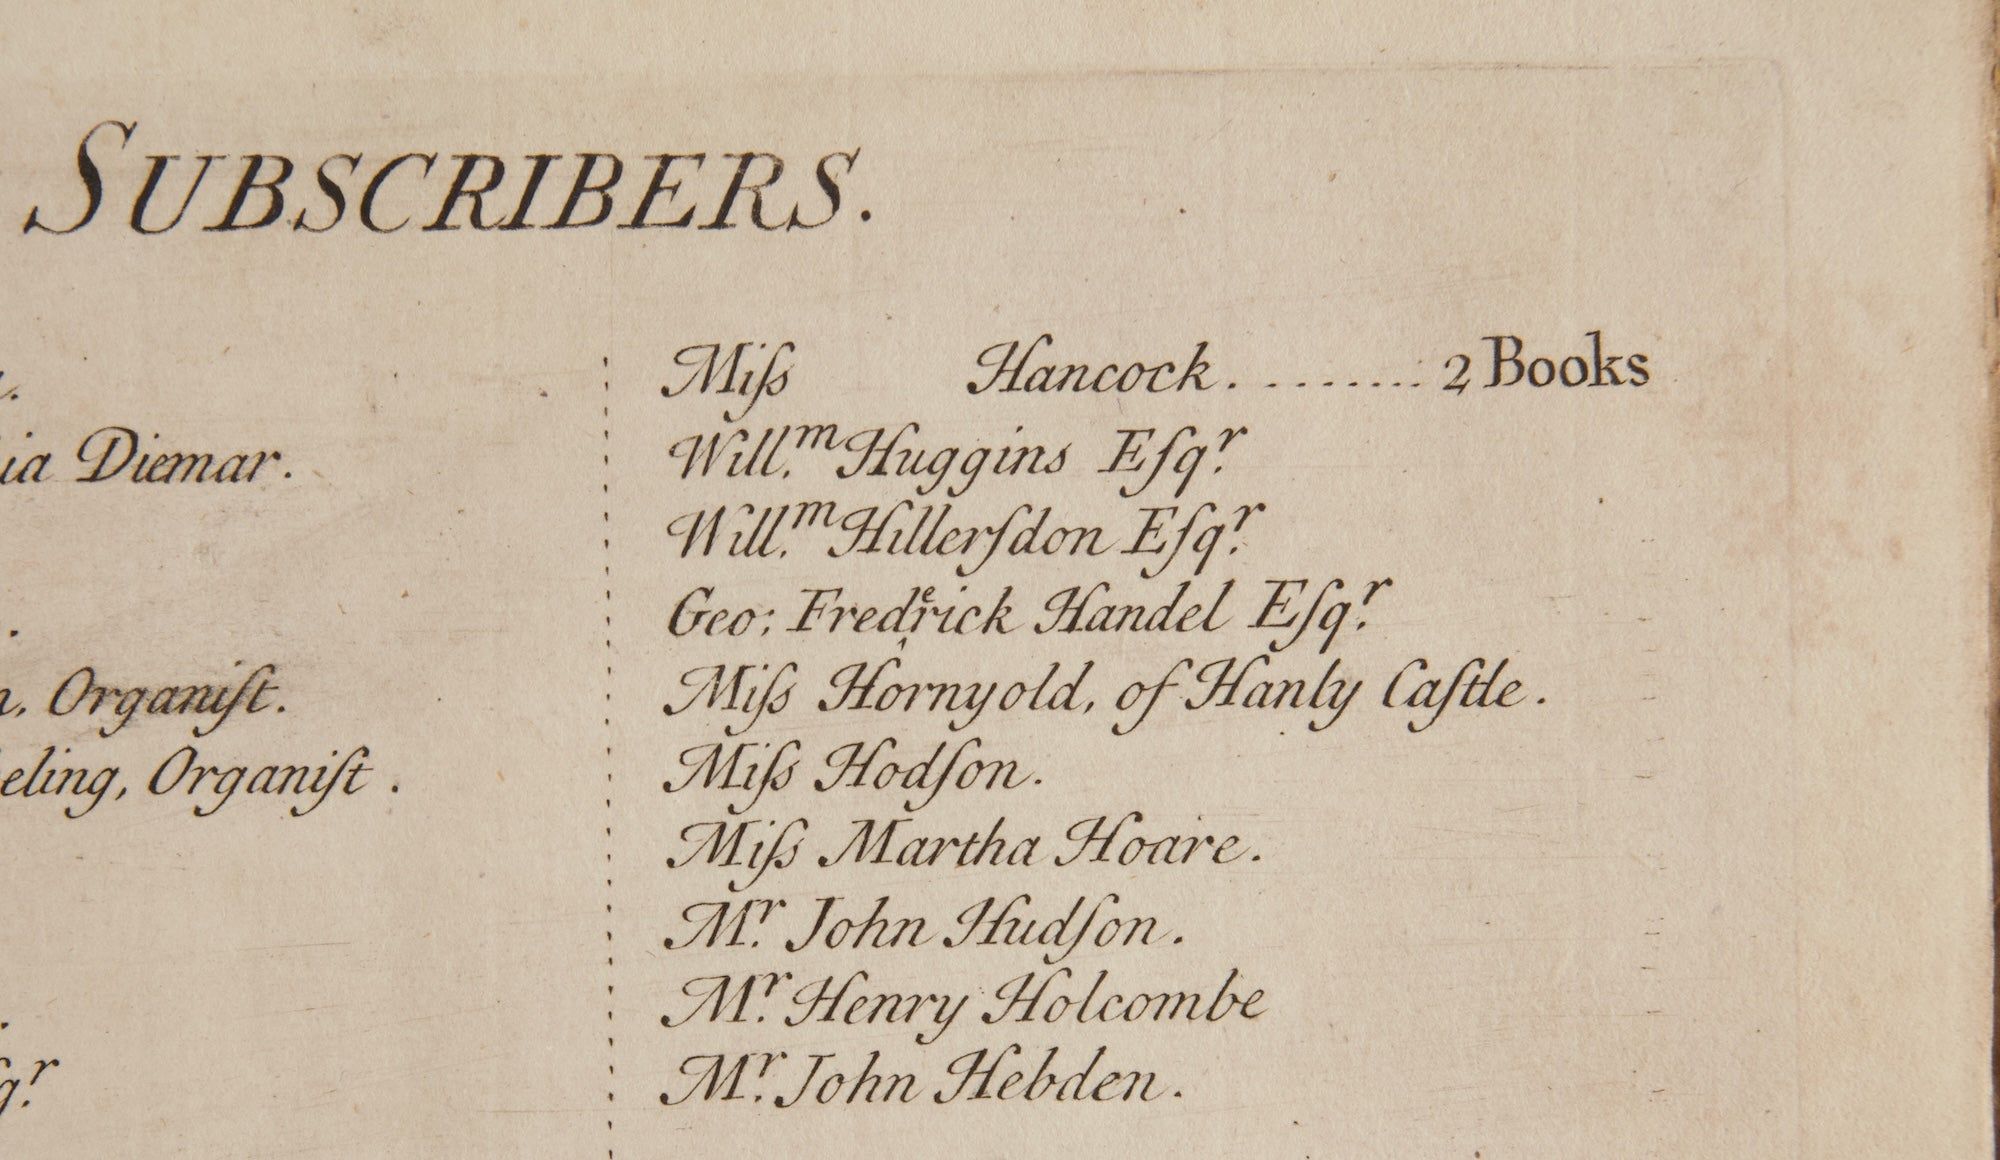 SUBSCRIBERS.
ia Diemar.
Organiſt.
eling, Organiſt.
Miſs Hancock. ........ 2 Books
Will.ᵐ Huggins Eſqʳ.
Will.ᵐ Hillerſdon Eſqʳ.
Geo: Fredᵉrick Handel Eſqʳ.
Miſs Hornyold, of Hanly Caſtle.
Miſs Hodſon.
Miſs Martha Hoare.
Mʳ. John Hudſon.
Mʳ. Henry Holcombe
Mʳ. John Hebden.